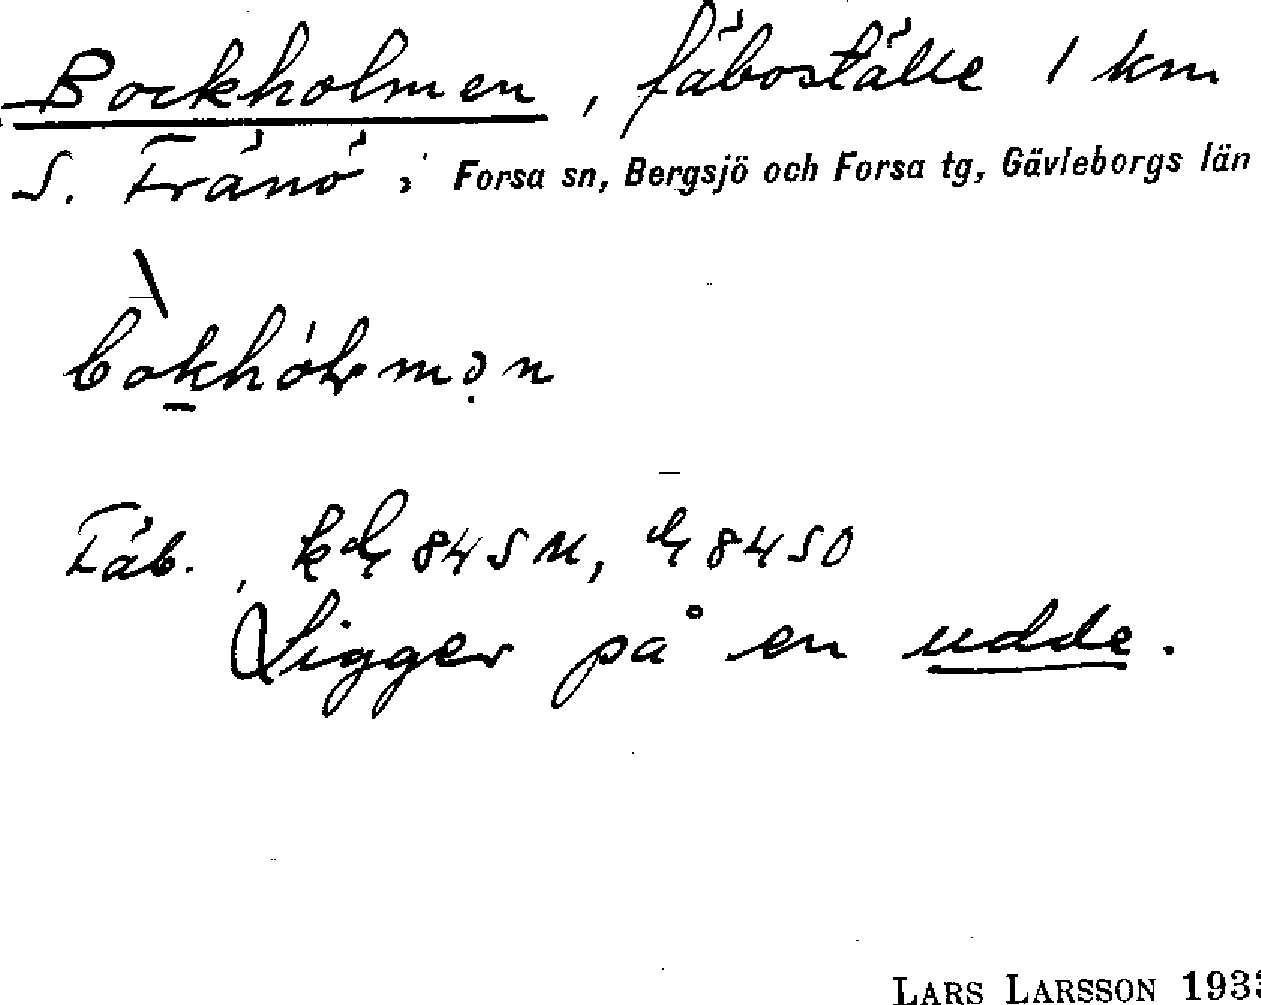 Bockholmen, fäboställe 1 km
S. Frånö i Forsa sn, Bergsjö och Forsa tg, Gävleborgs län
Fäb.
Ligger på en udde.
LARS LARSSON 193